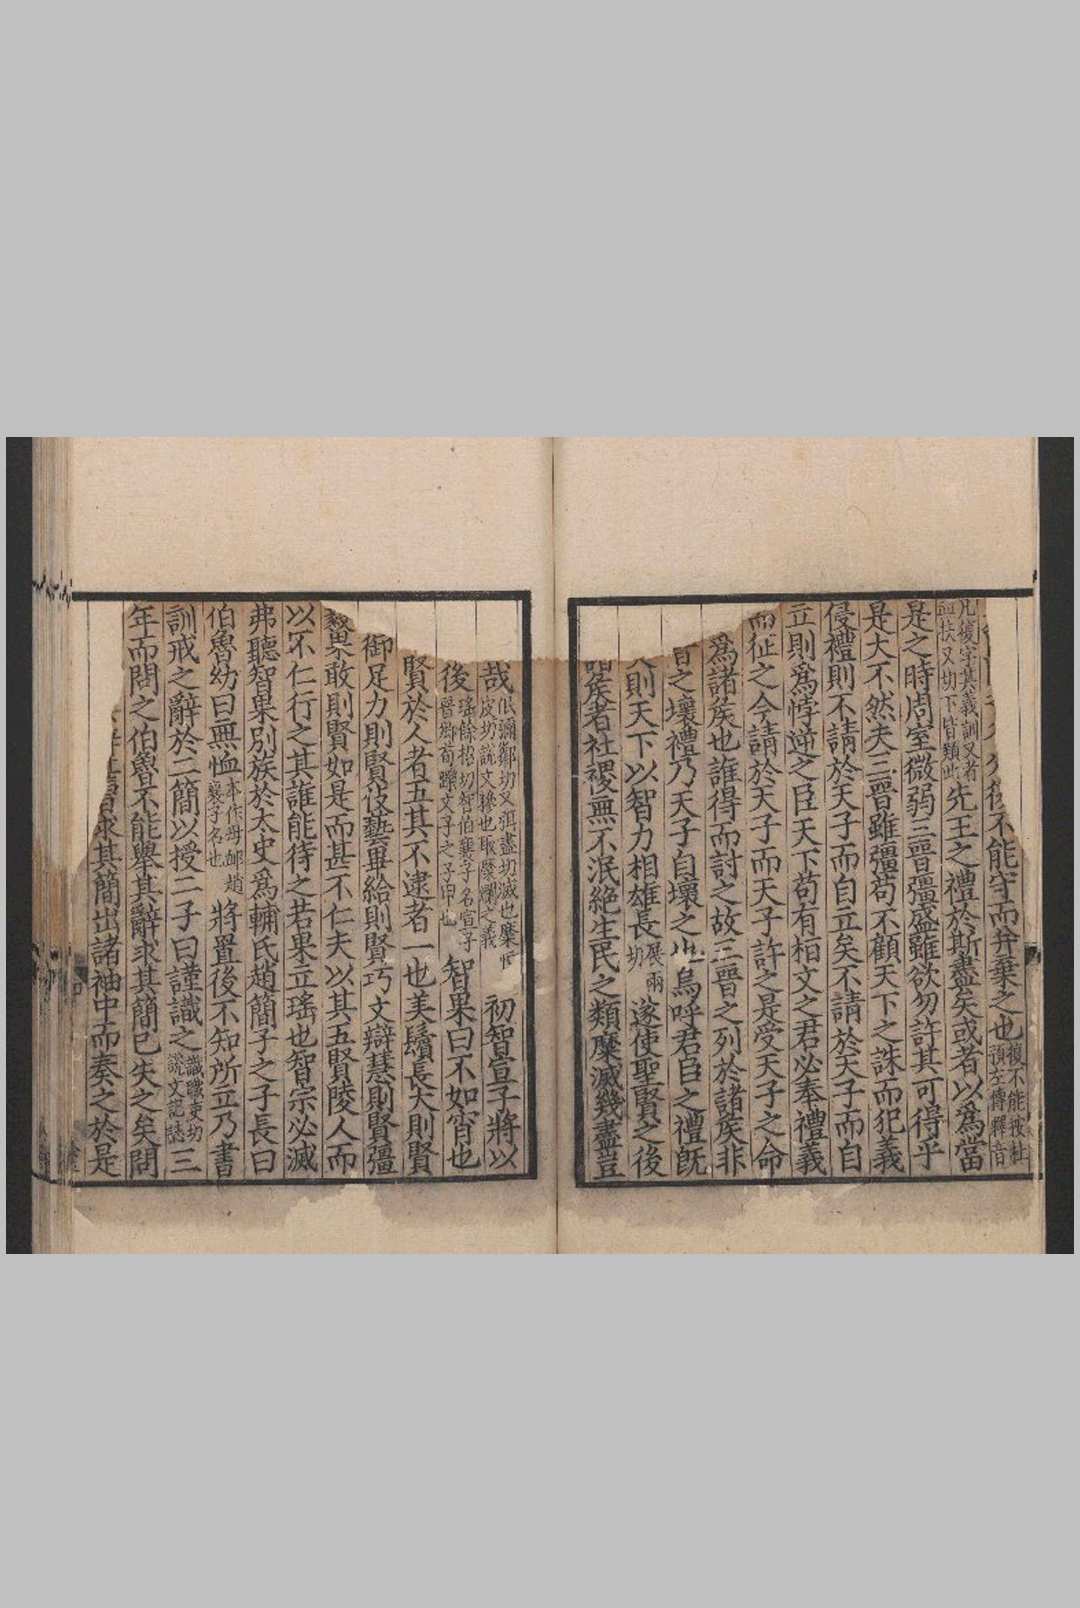 不能守而并棄之也復不能被杜預左傳釋音
凡復字其義訓又者並扶又切下皆類此先王之禮於斯盡矣或者以爲當
是之時周室微弱三晉彊盛雖欲勿許其可得乎
是大不然夫三晉雖彊苟不顧天下之誅而犯義
侵禮則不請於天子而自立矣不請於天子而自
立則爲悖逆之臣天下苟有桓文之君必奉禮義
而征之今請於天子而天子許之是受天子之命
爲諸侯也誰得而討之故三晉之列於諸侯非
晉之壞禮乃天子自壞之也烏呼君臣之禮旣
則天下以智力相雄長展兩切遂使聖賢之後
諸侯者社稷無不泯絶生民之類糜滅幾盡豈
哉
皮切說文糝也取糜爛之義初智宣子將以
後瑤餘招切智伯襄子名宣子晉卿荀躒文子之子申也智果曰不如宵也
賢於人者五其不逮者一也美鬢長大則賢
御足力則賢伎藝畢給則賢巧文辯慧則賢彊
毅果敢則賢如是而甚不仁夫以其五賢陵人而
以不仁行之其誰能待之若果立瑤也智宗必滅
弗聽智果別族於太史爲輔氏趙簡子之子長曰
伯魯幼曰無恤本作毋卹趙襄子名也將置後不知所立乃書
訓戒之辭於二簡以授二子曰謹識之識職吏切說文記誌三
年而問之伯魯不能舉其辭求其簡已失之矣問
求其簡出諸袖中而奏之於是